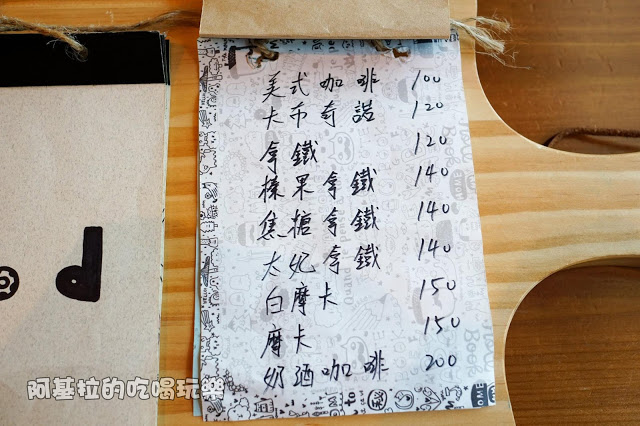 美式咖啡 100
卡布奇諾 120
拿鐵 120
榛果拿鐵 140
焦糖拿鐵 140
太妃拿鐵 140
白摩卡 150
摩卡 150
奶酒咖啡 200
阿基拉的吃喝玩樂